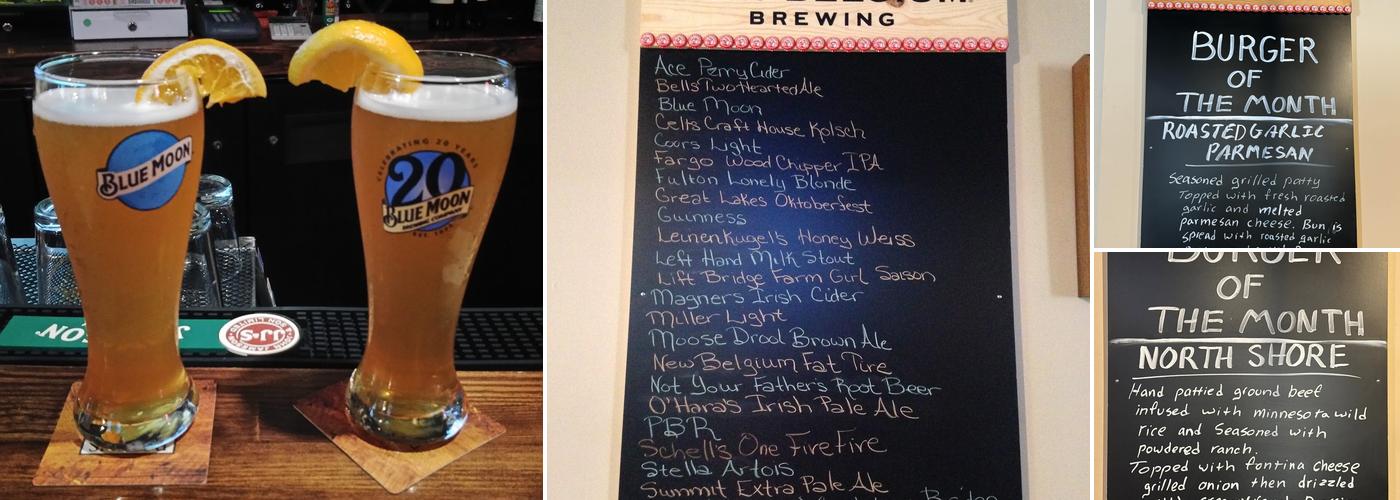 BLUE MOON
CELEBRATING 20 YEARS
20
BLUE MOON
BREWING COMPANY
EST. 1995
JOHN JAMESON
JJ&S
SON LIMITED
BREWING
Ace Perry Cider
Bells Two Hearted Ale
Blue Moon
Celts Craft House Kolsch
Coors Light
Fargo Wood Chipper IPA
Fulton Lonely Blonde
Great Lakes Oktoberfest
Guinness
Leinenkugel's Honey Weiss
Left Hand Milk Stout
Lift Bridge Farm Girl Saison
Magners Irish Cider
Miller Light
Moose Drool Brown Ale
New Belgium Fat Tire
Not Your Father's Root Beer
O'Hara's Irish Pale Ale
PBR
Schell's One Five Five
Stella Artois
Summit Extra Pale Ale
BURGER
OF
THE MONTH
ROASTED GARLIC
PARMESAN
Seasoned grilled patty
Topped with fresh roasted
garlic and melted
parmesan cheese. Bun is
spread with roasted garlic
BURGER
OF
THE MONTH
NORTH SHORE
Hand pattied ground beef
infused with minnesota wild
rice and Seasoned with
powdered ranch.
Topped with fontina cheese
grilled onion then drizzled